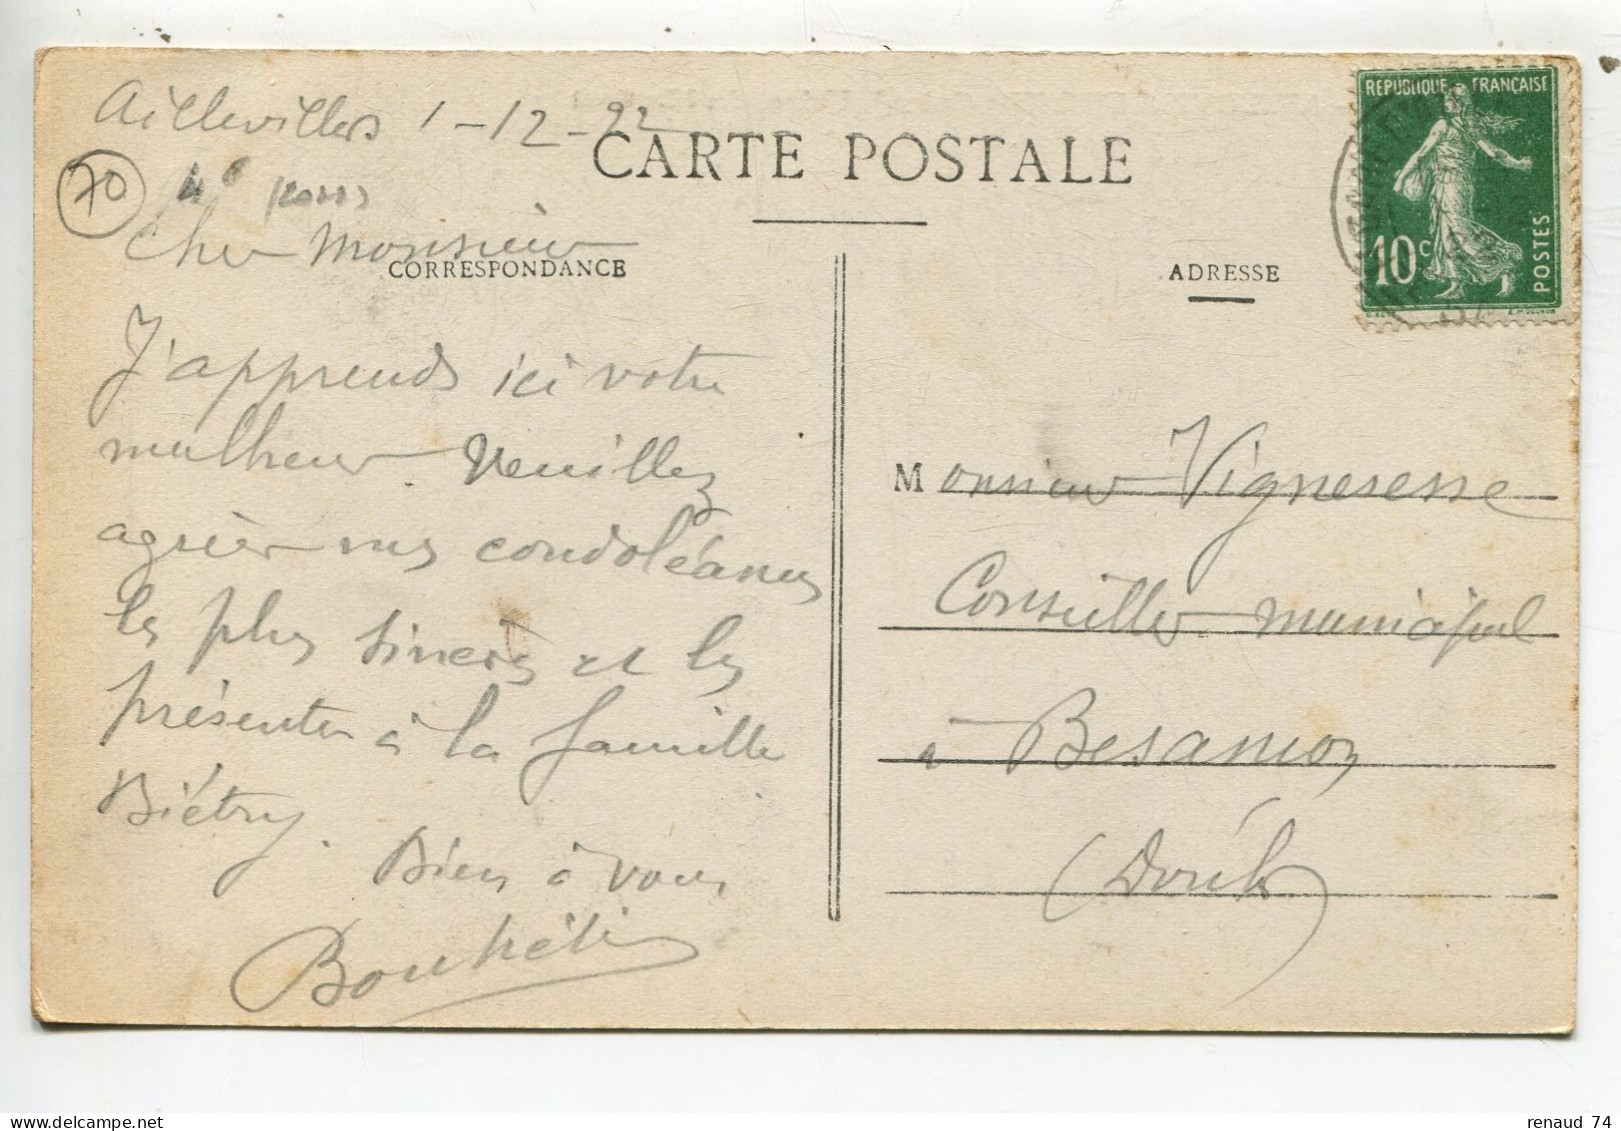 Aillevillers 1-12-22
CARTE POSTALE
REPUBLIQUE FRANÇAISE
10c
POSTES
70
Cher Monsieur
CORRESPONDANCE
ADRESSE
J'apprends ici votre
malheur. Veuillez
agréer mes condoléances
les plus sincères et les
présenter à la famille
Biétry.
Bien à vous
Monsieur Vigneresse
Conseiller municipal
à Besançon
(Doubs)
renaud 74